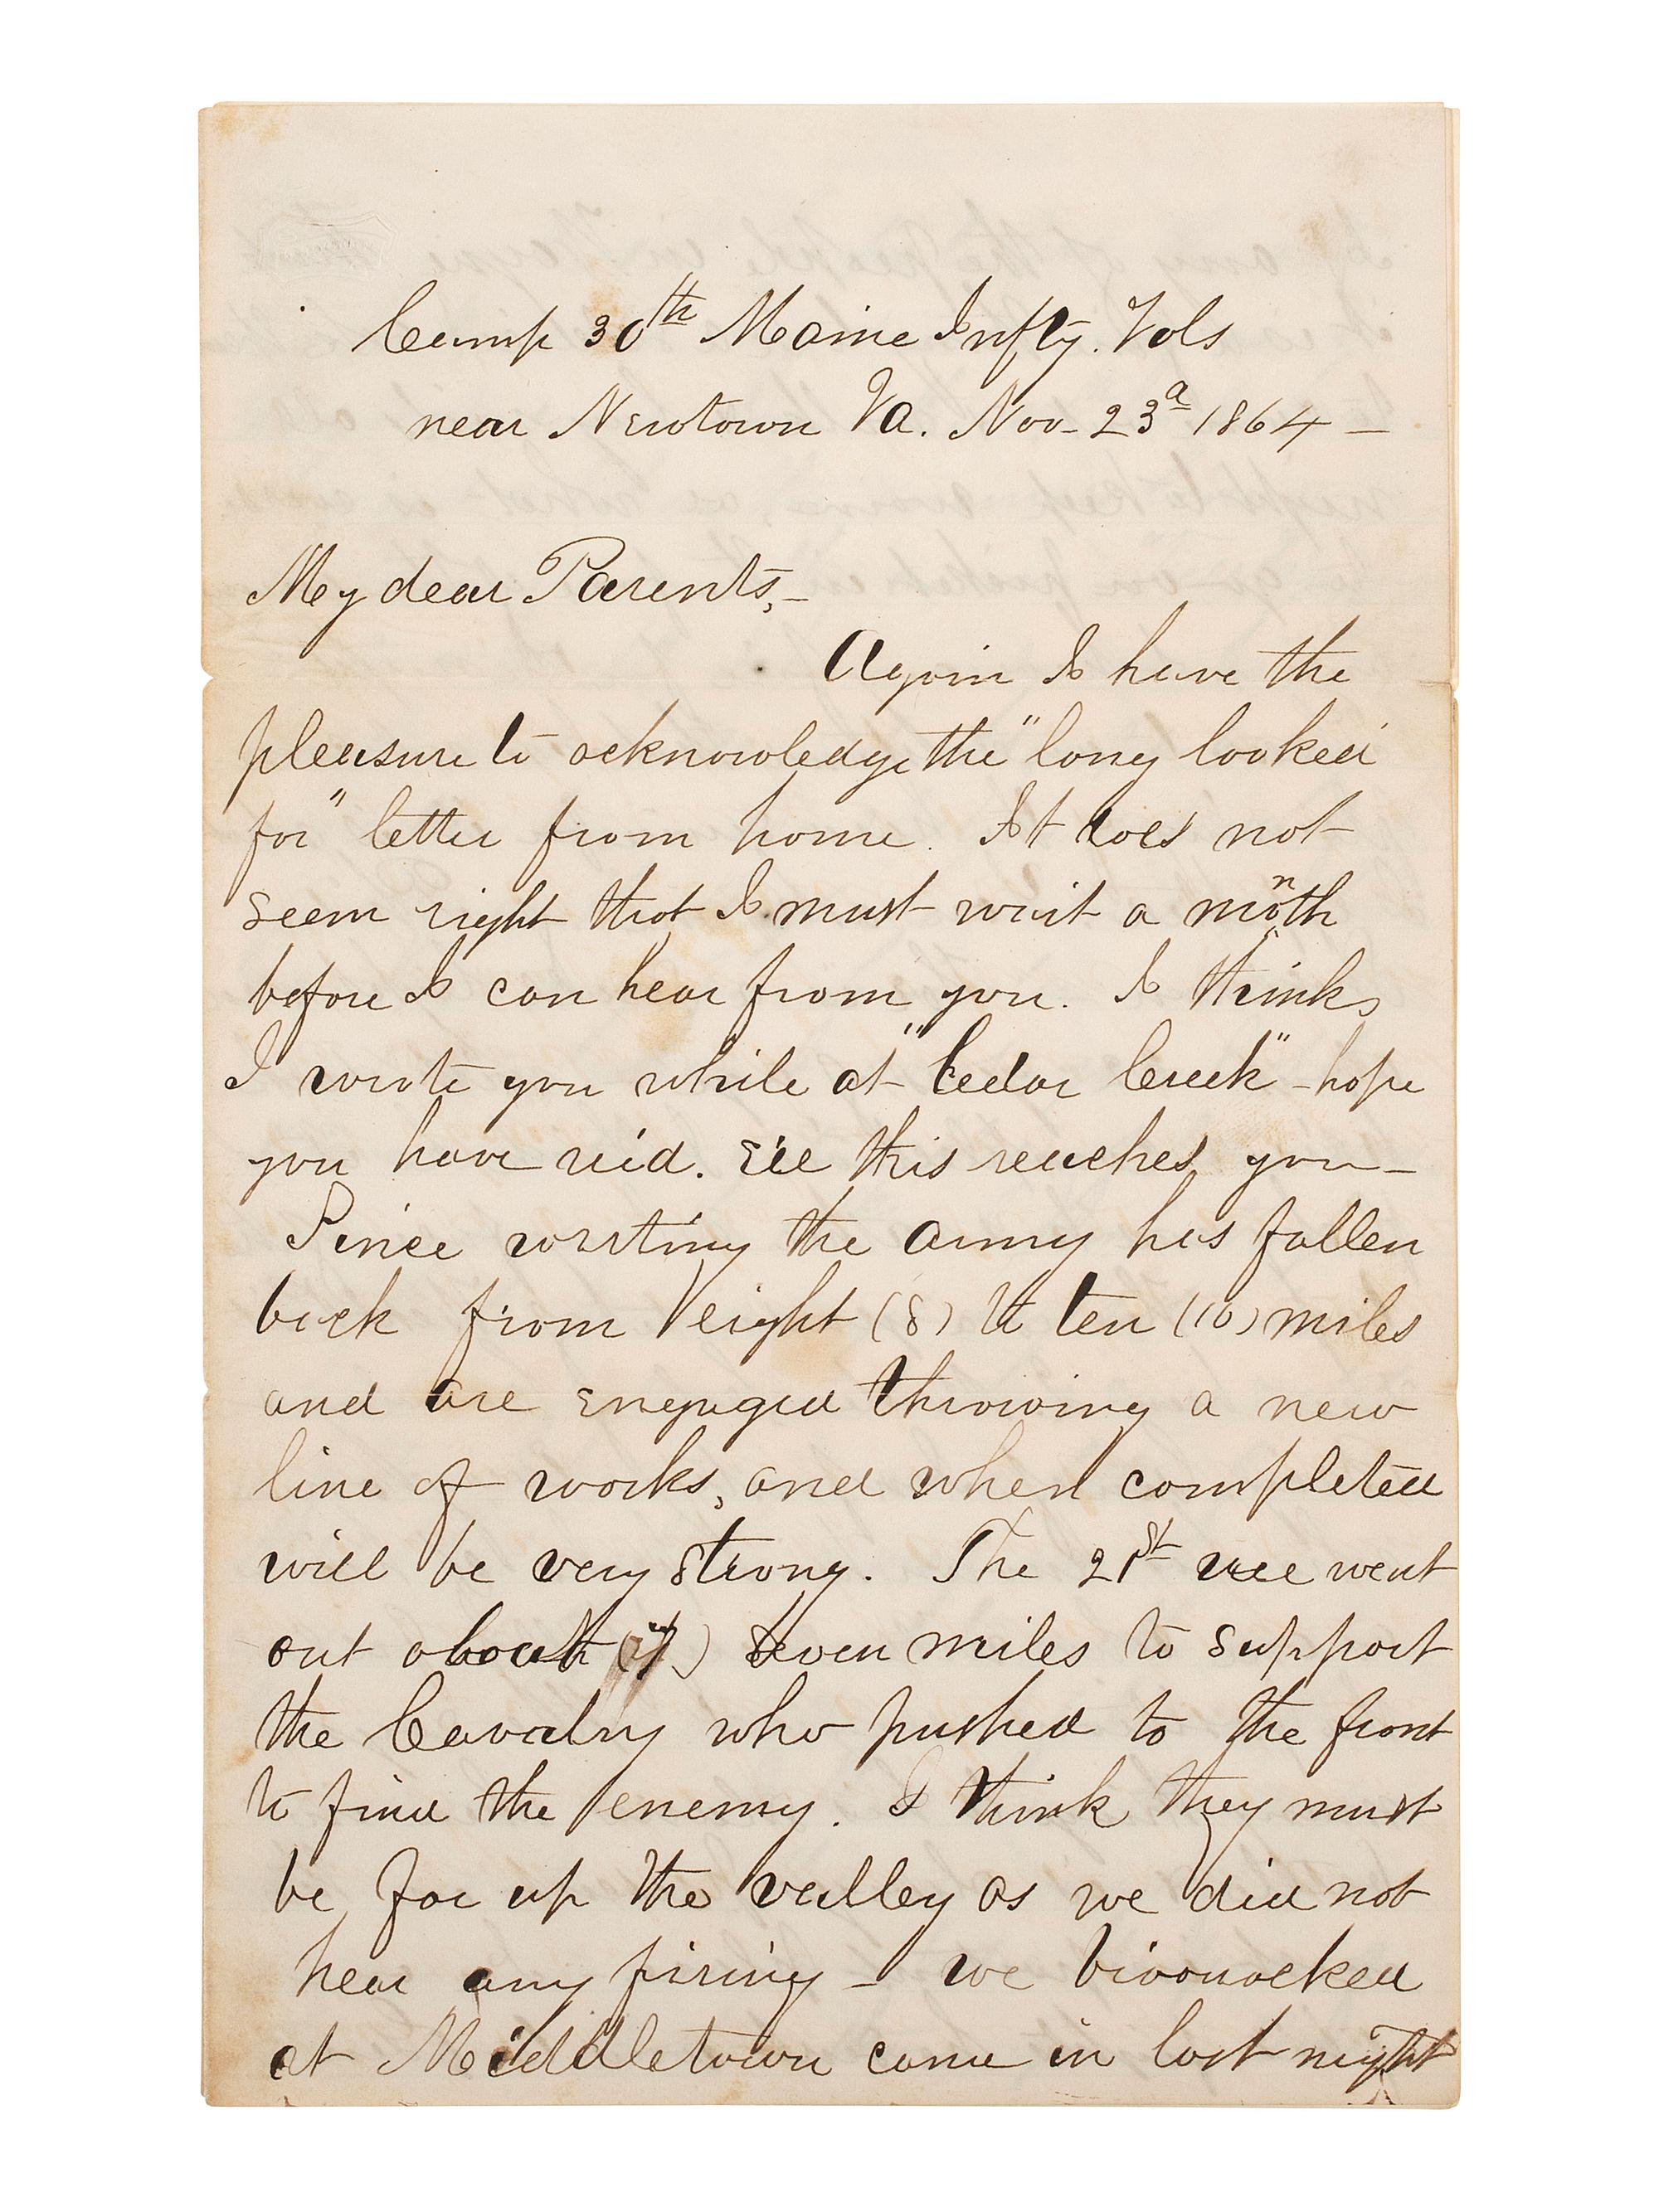 Camp 30th Maine Infty. Vols
near Newtown Va. Nov. 23d 1864 –
My dear Parents, –
Again I have the
pleasure to acknowledge the "long looked
for" letter from home. It does not
seem right that I must wait a month
before I can hear from you. I think
I wrote you while at "Cedar Creek" – hope
you have rec'd. ere this reaches you –
Since writing the army has fallen
back from eight (8) to ten (10) miles
and are engaged throwing a new
line of works, and when completed
will be very strong. The 21st we went
out about (7) seven miles to support
the Cavalry who pushed to the front
to find the enemy. I think they must
be far up the valley as we did not
hear any firing – we bivouacked
at Middletown came in last night